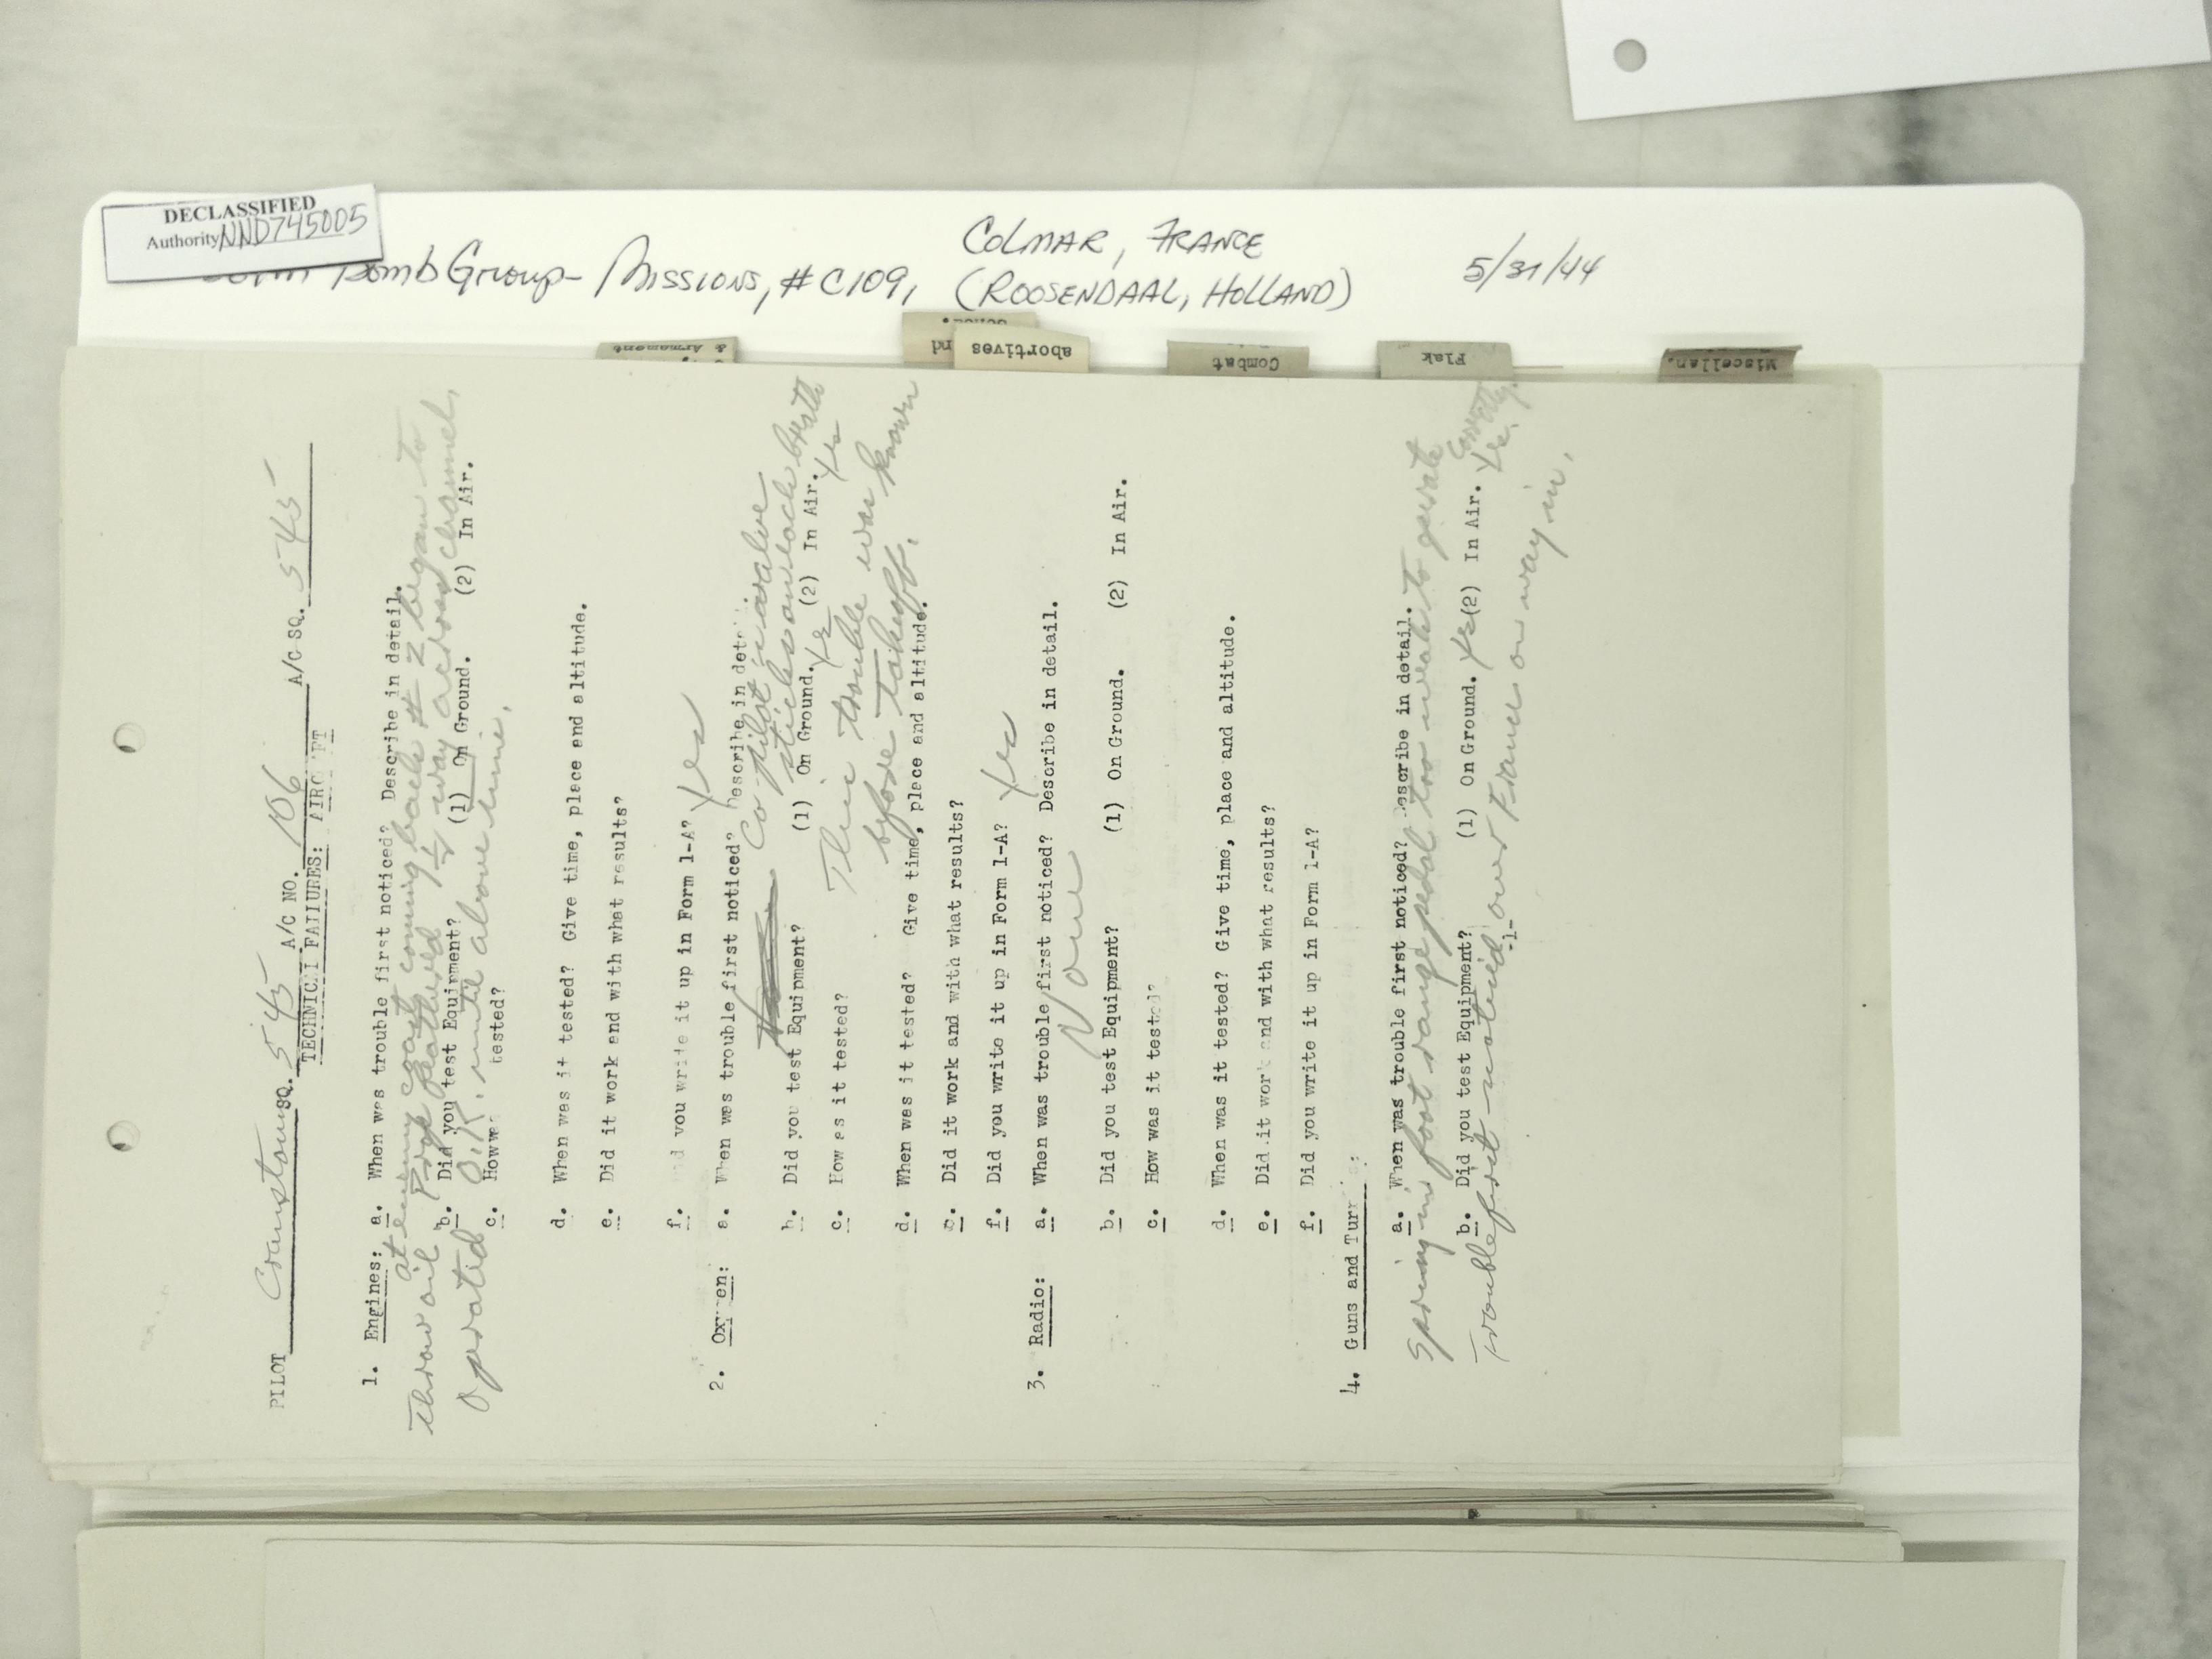 DECLASSIFIED
Authority NND745005
Bomb Group - Missions, #C109,
COLMAR, FRANCE
(ROOSENDAAL, HOLLAND)
5/31/44
& Armament
abortives
Combat
Flak
Miscellan.
PILOT Cranston SQ. 545 A/C NO. 106 A/C SQ. 545
TECHNICAL FAILURES: AIRCRAFT
1. Engines: a. When was trouble first noticed? Describe in detail.
at enemy coast coming back # 2 began to
throw oil Prop feathered ½ way across channel,
b. Did you test Equipment? (1) On Ground. (2) In Air.
Operated O.K. until above time.
c. How tested?
d. When was it tested? Give time, place and altitude.
e. Did it work and with what results?
f. Did you write it up in Form 1-A? Yes
2. Oxygen: a. When was trouble first noticed? Describe in detail.
Co pilot's valve
sticks on
b. Did you test Equipment? (1) On Ground. Yes (2) In Air. Yes
c. How as it tested?
This trouble was known
before takeoff.
d. When was it tested? Give time, place and altitude.
e. Did it work and with what results?
f. Did you write it up in Form 1-A? Yes
3. Radio: a. When was trouble first noticed? Describe in detail.
None
b. Did you test Equipment? (1) On Ground. (2) In Air.
c. How was it tested?
d. When was it tested? Give time, place and altitude.
e. Did it work and with what results?
f. Did you write it up in Form 1-A?
4. Guns and Turrets:
a. When was trouble first noticed? Describe in detail.
Spring in foot range pedal too weak to operate
b. Did you test Equipment? (1) On Ground. Yes (2) In Air. Yes
Trouble first noticed over France on way in.
-1-